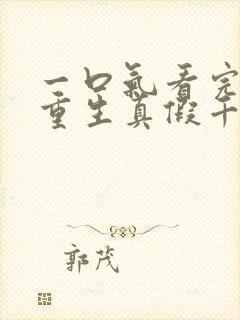 一口氣看完
重生真假千
郭茂